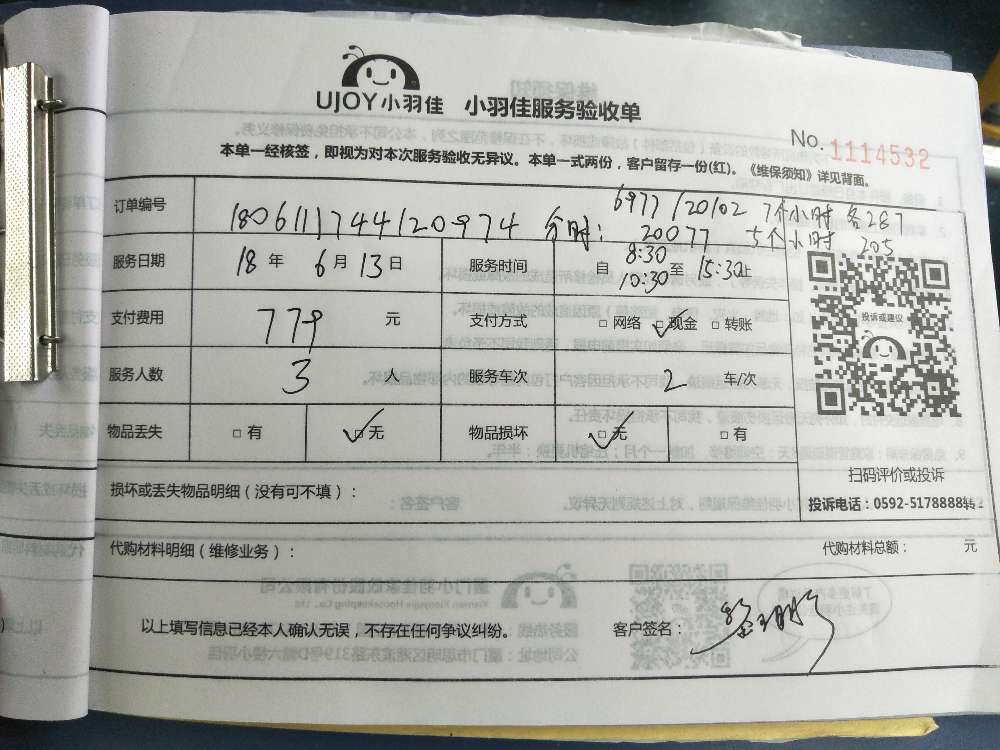 UJOY小羽佳 小羽佳服务验收单
No. 1114532
本单一经核签，即视为对本次服务验收无异议。本单一式两份，客户留存一份(红)。《维保须知》详见背面。
6977/20102 7个小时 各287
订单编号 1806111744120974 分时： 20077 5个小时 205
服务日期 18 年 6 月 13 日 服务时间 自 8:30 10:30 至 15:30止
投诉或建议
支付费用 779 元 支付方式 □ 网络 ✓□ 现金 □ 转账
服务人数 3 人 服务车次 2 车/次
物品丢失 □ 有 ✓□ 无 物品损坏 ✓□ 无 □ 有
扫码评价或投诉
损坏或丢失物品明细（没有可不填）： 投诉电话：0592-5178888转2
代购材料明细（维修业务）： 代购材料总额： 元
以上填写信息已经本人确认无误，不存在任何争议纠纷。 客户签名：